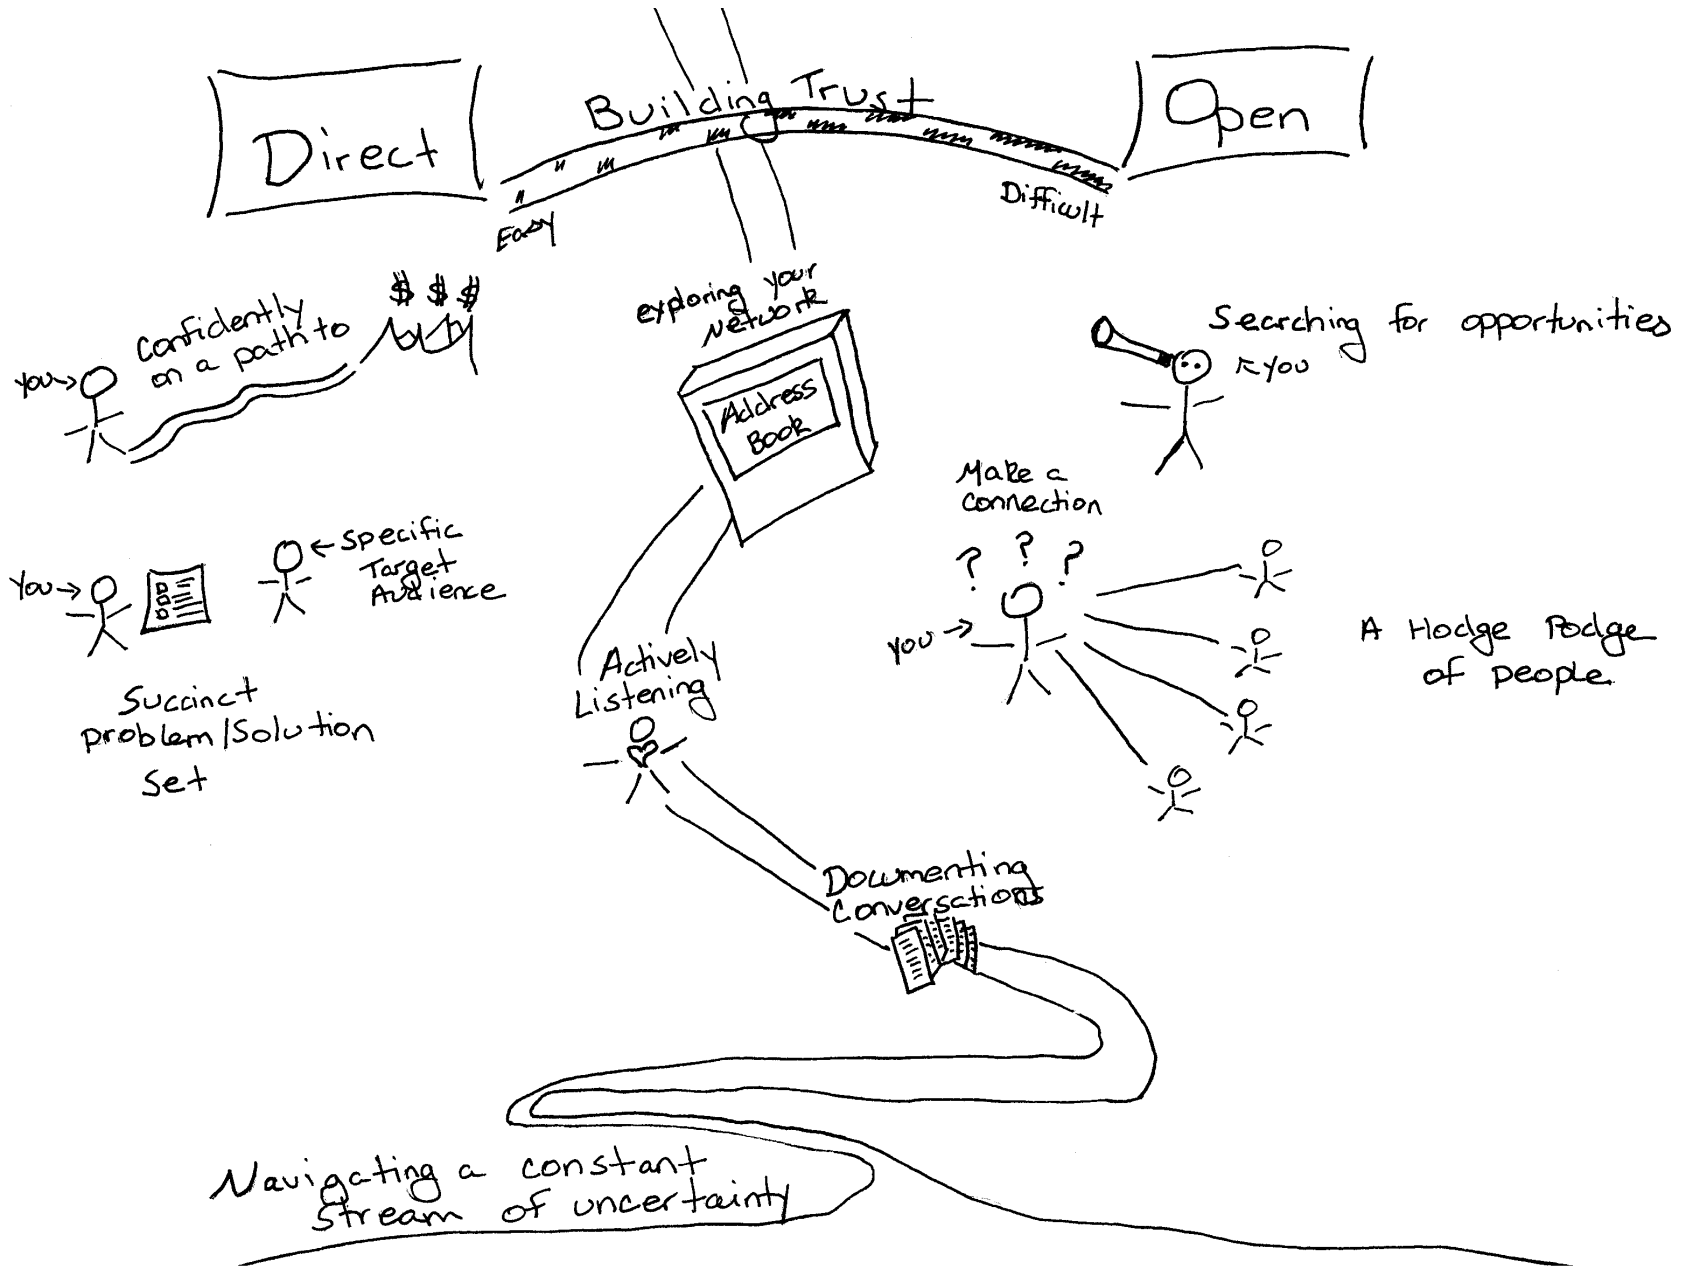 Direct
Building Trust
Open
Easy
Difficult
Confidently
on a path to
$ $ $
you
exploring your
Network
Address
Book
Searching for opportunities
you
Make a
connection
? ? ?
you
A Hodge Podge
of people
you
Specific
Target
Audience
Succinct
problem/solution
set
Actively
Listening
Documenting
Conversations
Navigating a constant
stream of uncertainty